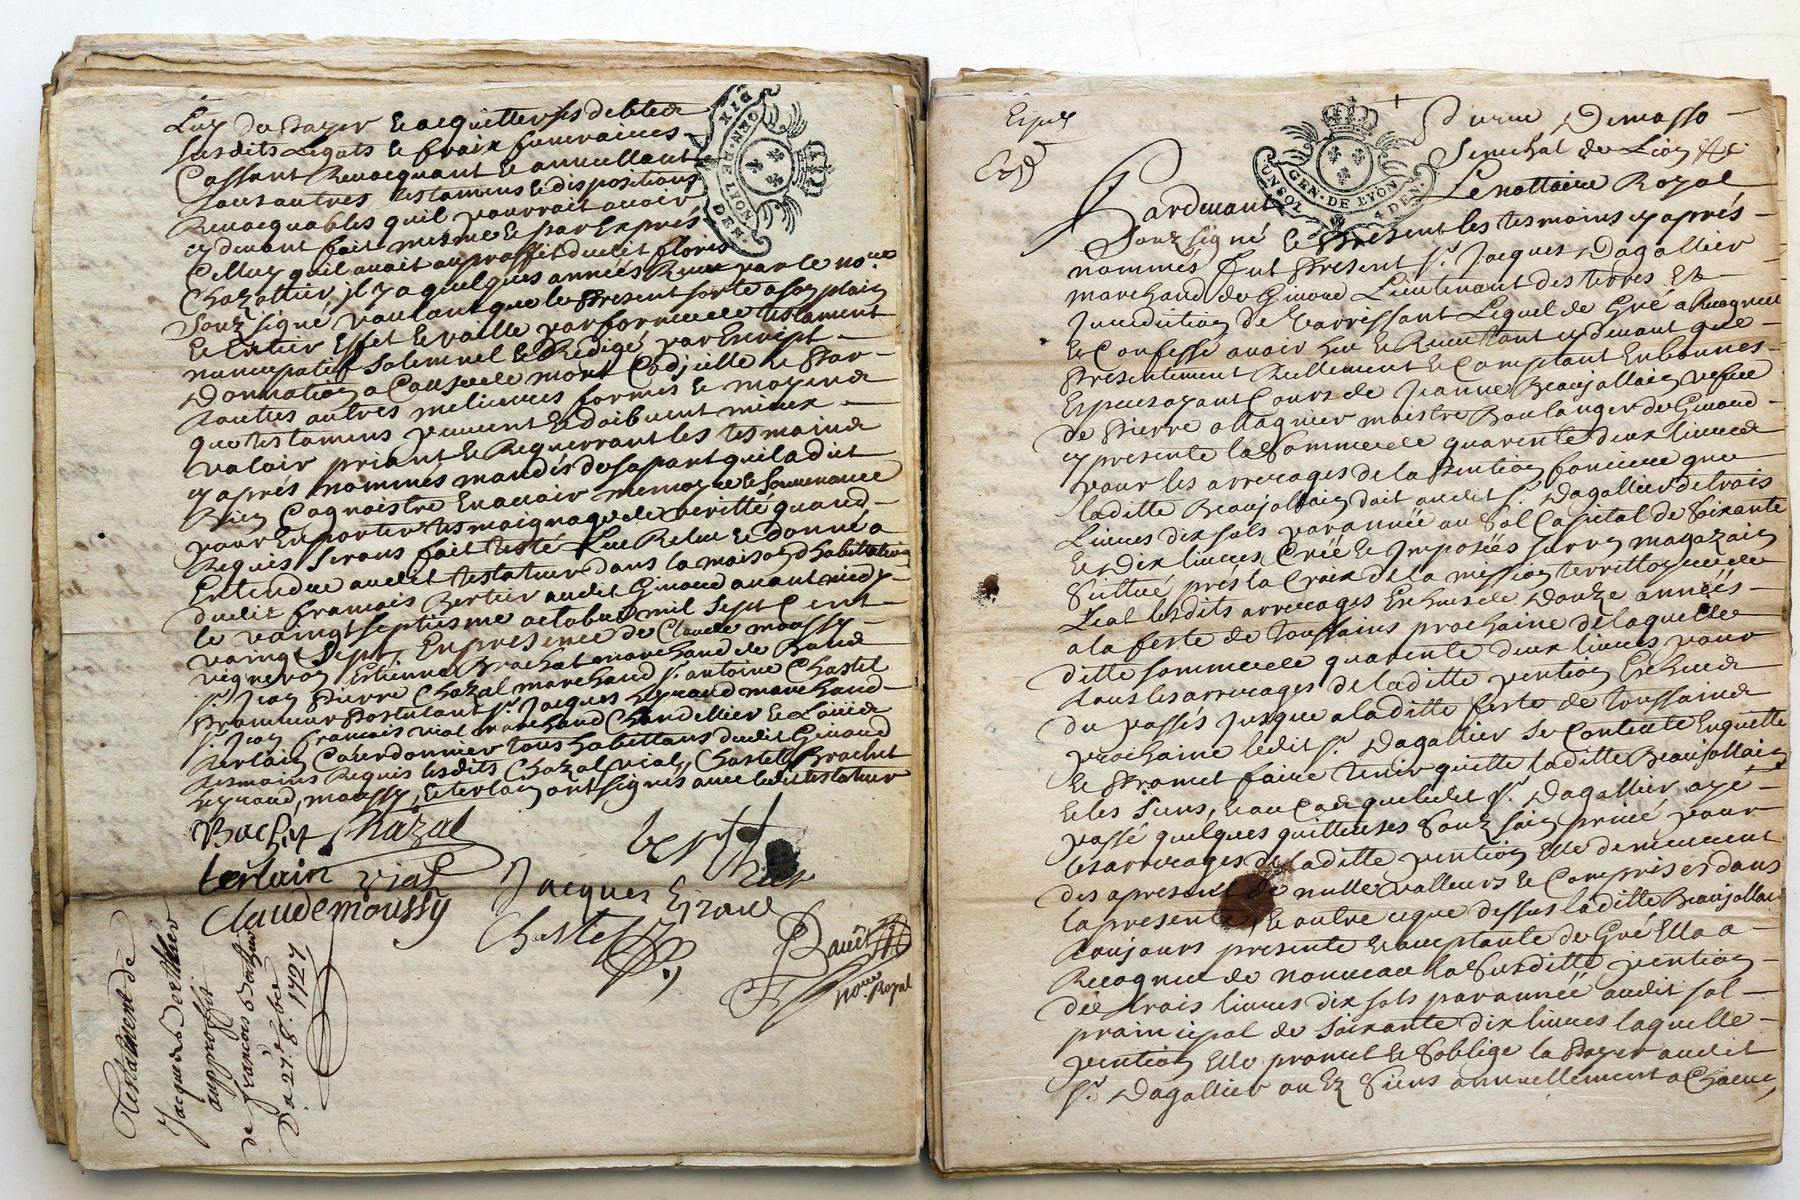 Luy du Payer et acquitter ses debtes
susdits Legats et fraix funeraires
Cassant Revocquant et annullant
tous autres testamens et dispositions
Revocquables quil pourrait avoir
cy devant fait mesme et par Exprés
Celluy quil avait au proffit dudit floris
Chazottier, il y a quelques années Reçeu par le no.re
Souz signé voulant que le Present sorte a son plain
et Entier Effet et vaille par forme de testament
nuncupatif Solemnel et Redigé par Escript
Donnation a Cause de mort Codicille et Par
toutes autres melieures formes et moyens
que testamens peuvent et doibvent mieux
valoir priant et Requerrant les tesmoins
cy aprés nommés mandés de sa part quil a dit
Bien Cognoistre En avoir memoire et souvenance
pour En porter tesmoignage de veritté quand
Requis Serons fait
Entendue audit testateur dans la maison d'habitation
dudit francois Bertier audit Givaud avant midy
le vaingt septiesme octobre mil Sept Cent
vaingt Sept, En presence de Claude moussy
vigneron Estienne Brachet marchand de
S.r Jean Pierre Chazal marchand S.r antoine Chastel
Pratticien Postulant S.r Jacques marchand
S.r Jean francois vial marchand Chandellier et Louis
terlain Cordonnier tous habittans dudit Givaud
tesmoins Requis lesdits Chazal, vial, Chastel, Brachet
moussy, et terlain ont signés avec ledit testateur
Chazal
terlain vial
Jacques
Claude moussy
Chastel
no.re Royal
Testament de
Jacques Berthier
au proffit
de francois Berthier
Du 27.e 8.bre 1727
DIX
GEN. DE LYON
DEN.
GEN. DE LYON
UN SOL
4 DEN.
Senechal de Lion &c
Pardevant Le nottaire Royal
Souz signé et Present les tesmoins cy aprés
nommés fut Present S.r Jacques Dagallier
marchand de Givaud Lieutenant des terres et
Jurediction de Lequel de Gré a Recognu
et Confessé avoir heu et Reçeu tant cy devant que
Presentement Reellement et Comptant En bonnes
Especes ayant Cours de Jeanne Beaujollain vefue
de Pierre maistre Boulanger de Givaud
cy presente la Somme de quarente deux livres
pour les arrerages de la Pention fonciere que
laditte Beaujollain doit audit S.r Dagallier de trois
Livres dix sols par année au Sol Capital de Soixante
et dix livres, Créé et Imposées sur un magazain
Scittué pres la Croix de la mission territtoire de
lesdits arrerages Escheus de Douze années
a la feste de toussains prochaine de laquelle
ditte somme de quarente deux livres pour
tous les arrerages de laditte pention Escheus
du passés jusque a laditte feste de toussains
prochaine ledit S.r Dagallier se Contente En quitte
et Promet faire tenir quitte laditte Beaujollain
et les Siens, et au Cas que ledit S.r Dagallier aye
passé quelques quittances Souz sain privé pour
les arrerages de laditte pention Elle demeurent
des apresent de nulle valleurs et Comprises dans
la presente, et outre ce que dessus laditte Beaujollain
toujours presente et acceptante de Gré Elle a
Recognu de nouveau la Susditte pention
de trois livres dix sols par année audit sol
principal de Soixante dix livres laquelle
pention Elle promet et Soblige la Payer audit
S.r Dagallier ou Ez Siens annuellement a Chacune